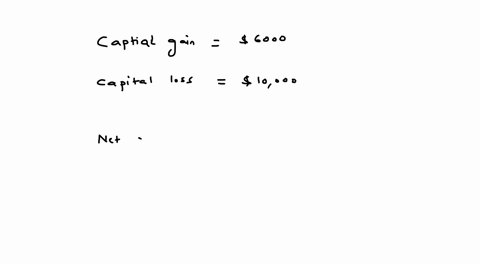 Captial gain = $6000
Capital loss = $10,000
Net